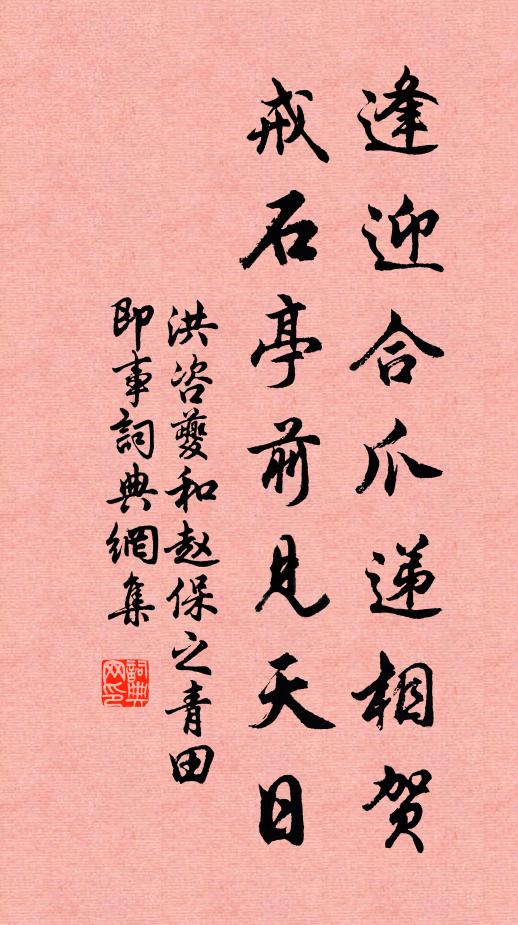 逢迎合爪递相贺
戒石亭前見天日
洪咨夔和赵保之青田
即事詞典網集
詞典网印